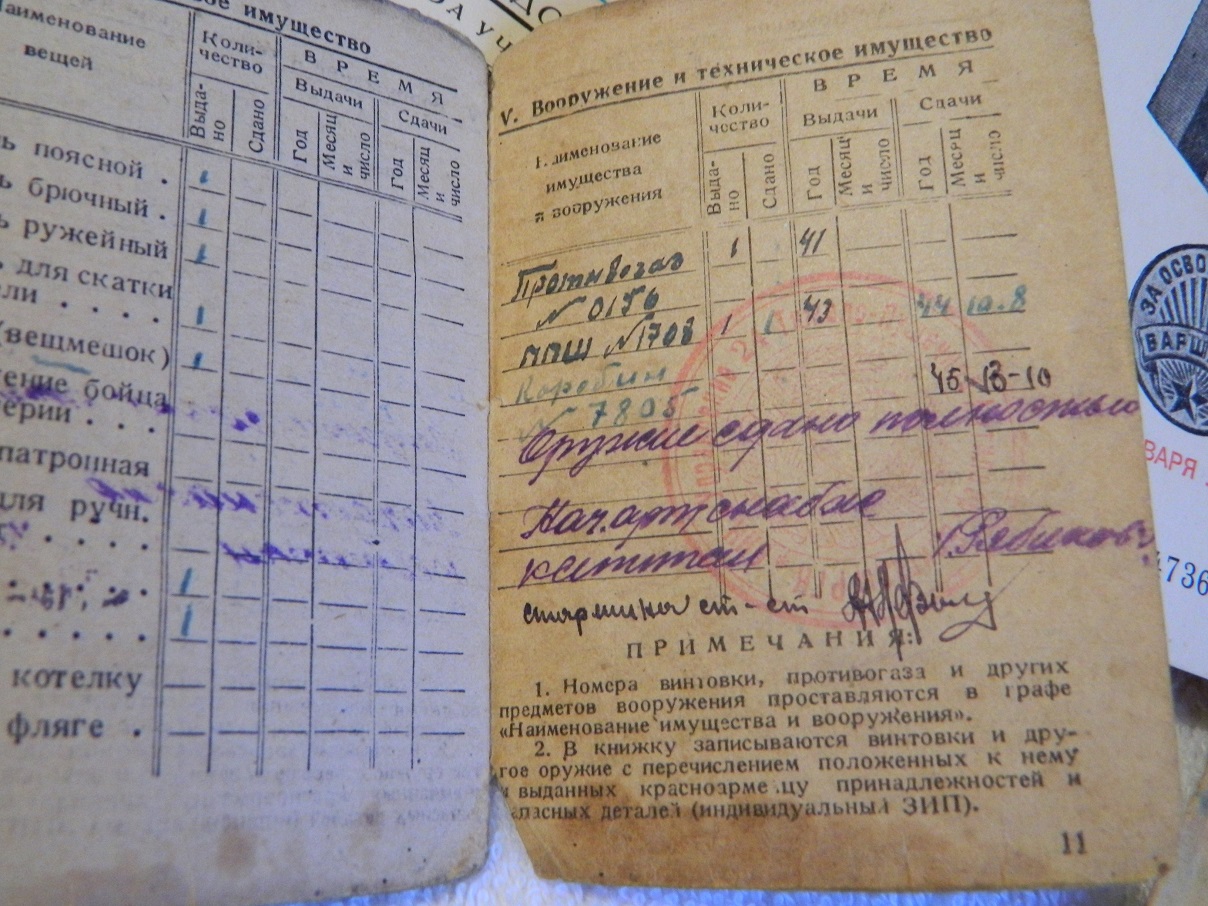 ое имущество
Наименование
вещей
Коли-
чество
ВРЕМЯ
Выдачи
Сдачи
Выда-
но
Сдано
Год
Месяц
и
число
Год
Месяц
и
число
ь поясной . 1
ь брючный . 1
ь ружейный 1
ь для скатки
ели . . . . 1
(вещмешок) 1
ение бойца
ерии . . .
патронная
для ручн.
котелку
фляге .
V. Вооружение и техническое имущество
Наименование
имущества
и вооружения
Коли-
чество
ВРЕМЯ
Выдачи
Сдачи
Выда-
но
Сдано
Год
Месяц
и
число
Год
Месяц
и
число
Противогаз 1 41
№ 0156
ППШ №1708 1 1 43 44 10.8
Коробин
№ 7805
Оружие сдано полностью
Нач. артснабже
капитан
ПРИМЕЧАНИЯ:
1. Номера винтовки, противогаза и других
предметов вооружения проставляются в графе
«Наименование имущества и вооружения».
2. В книжку записываются винтовки и дру-
гое оружие с перечислением положенных к нему
и выданных красноармейцу принадлежностей и
запасных деталей (индивидуальный ЗИП).
11
ЗА ОСВО
ВАРШ
ВАРЯ
4736